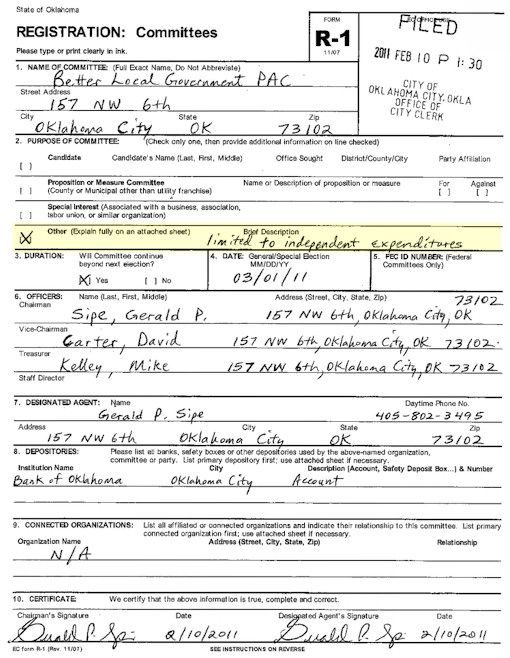 State of Oklahoma
REGISTRATION: Committees
Please type or print clearly in ink.
FORM
R-1
11/07
FILED
2011 FEB 10 P 1:30
CITY OF
OKLAHOMA CITY, OKLA
OFFICE OF
CITY CLERK
1. NAME OF COMMITTEE: (Full Exact Name, Do Not Abbreviate)
Better Local Government PAC
Street Address
157 NW 6th
City State Zip
Oklahoma City OK 73102
2. PURPOSE OF COMMITTEE: (Check only one, then provide additional information on line checked)
Candidate Candidate's Name (Last, First, Middle) Office Sought District/County/City Party Affiliation
[ ]
Proposition or Measure Committee Name or Description of proposition or measure For Against
[ ] (County or Municipal other than utility franchise) [ ] [ ]
Special Interest (Associated with a business, association,
[ ] labor union, or similar organization)
Other (Explain fully on an attached sheet) Brief Description
[X] limited to independent expenditures
3. DURATION: Will Committee continue 4. DATE: General/Special Election 5. FEC ID NUMBER: (Federal
beyond next election? MM/DD/YY Committees Only)
[X] Yes [ ] No 03/01/11
6. OFFICERS: Name (Last, First, Middle) Address (Street, City, State, Zip) 73102
Chairman
Sipe, Gerald P. 157 NW 6th, Oklahoma City, OK
Vice-Chairman
Carter, David 157 NW 6th, Oklahoma City, OK 73102.
Treasurer
Kelley, Mike 157 NW 6th, Oklahoma City, OK 73102
Staff Director
7. DESIGNATED AGENT: Name Daytime Phone No.
Gerald P. Sipe 405-802-3495
Address City State Zip
157 NW 6th Oklahoma City OK 73102
8. DEPOSITORIES: Please list all banks, safety boxes or other depositories used by the above-named organization,
committee or party. List primary depository first; use attached sheet if necessary.
Institution Name City Description (Account, Safety Deposit Box...) & Number
Bank of Oklahoma Oklahoma City Account
9. CONNECTED ORGANIZATIONS: List all affiliated or connected organizations and indicate their relationship to this committee. List primary
connected organization first; use attached sheet if necessary.
Organization Name Address (Street, City, State, Zip) Relationship
N/A
10. CERTIFICATE: We certify that the above information is true, complete and correct.
Chairman's Signature Date Designated Agent's Signature Date
Gerald P. Sipe 2/10/2011 Gerald P. Sipe 2/10/2011
EC form R-1 (Rev. 11/07) SEE INSTRUCTIONS ON REVERSE